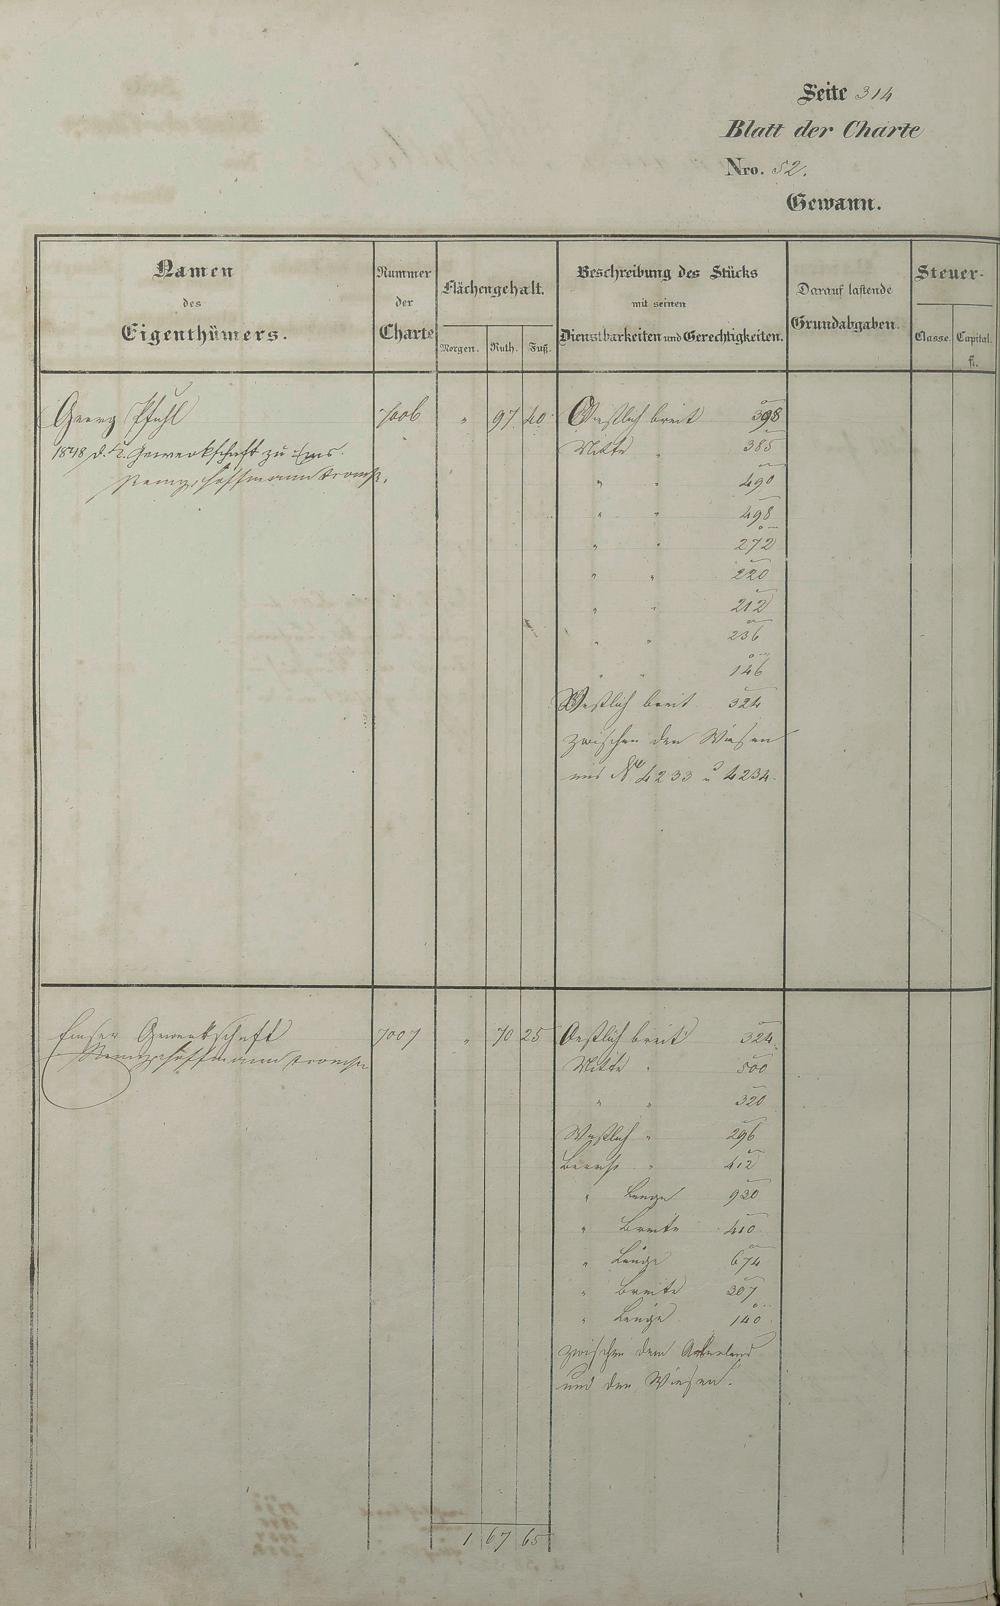 Seite 314
Blatt der Charte
Nro. 52.
Gewann.
Namen
des
Eigenthümers.
Nummer
der
Charte
Flächengehalt.
Morgen. Ruth. Fuß.
Beschreibung des Stücks
mit seinen
Dienstbarkeiten und Gerechtigkeiten.
Darauf lastende
Grundabgaben.
Steuer-
Classe. Capital.
fl.
Georg Pfuhl 7006 " 97 40 Oestlich breit 398
1848 d. d. Gewerkschaft zu Ems. Mitte " 385
Remy, Hoffmann
" " 490
" " 498
" " 272
" " 220
" " 212
" " 236
" " 146
Westlich breit 324
zwischen den Wiesen
mit No 4233 u 4234.
Emser Gewerkschaft 7007 " 70 25 Oestlich breit 324
Remy Hoffmann
Mitte " 500
" " 320
Westlich " 296
" 412
" Länge 920
" Breite 410
" Länge 674
" Breite 307
" Länge 140
zwischen dem Ackerland
und den Wiesen.
1 67 65